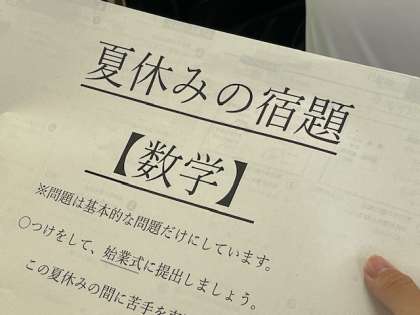 夏休みの宿題
【数学】
※問題は基本的な問題だけにしています。
○つけをして、始業式に提出しましょう。
この夏休みの間に苦手を